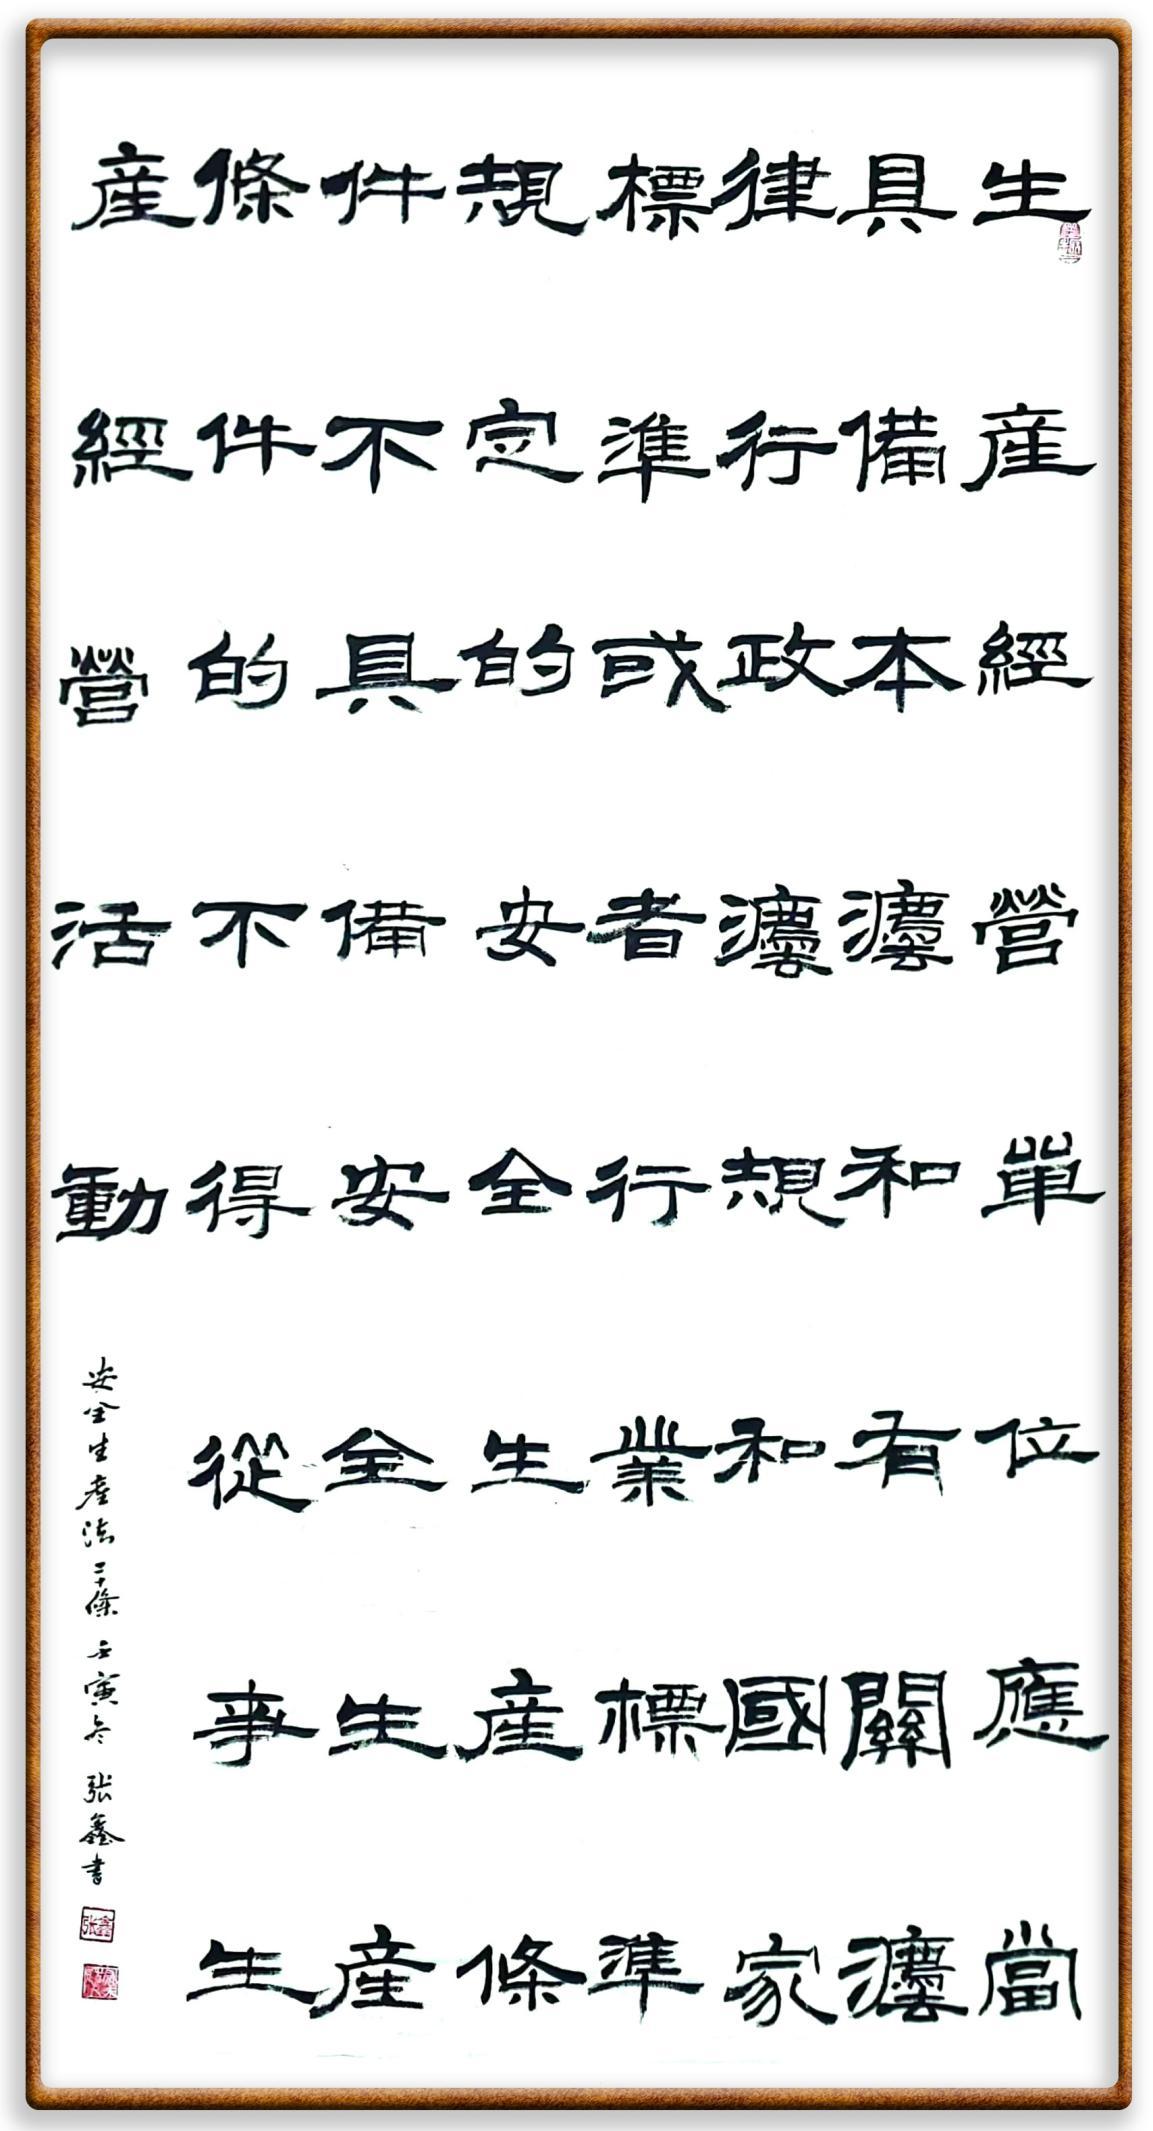 生産經營單位應當
具備本灋和有關灋
律行政灋規和國家
標準或者行業標準
規定的安全生産條
件不具備安全生産
條件的不得從事生
産經營活動
安全生産法二十條 壬寅冬 張鑫書
張鑫